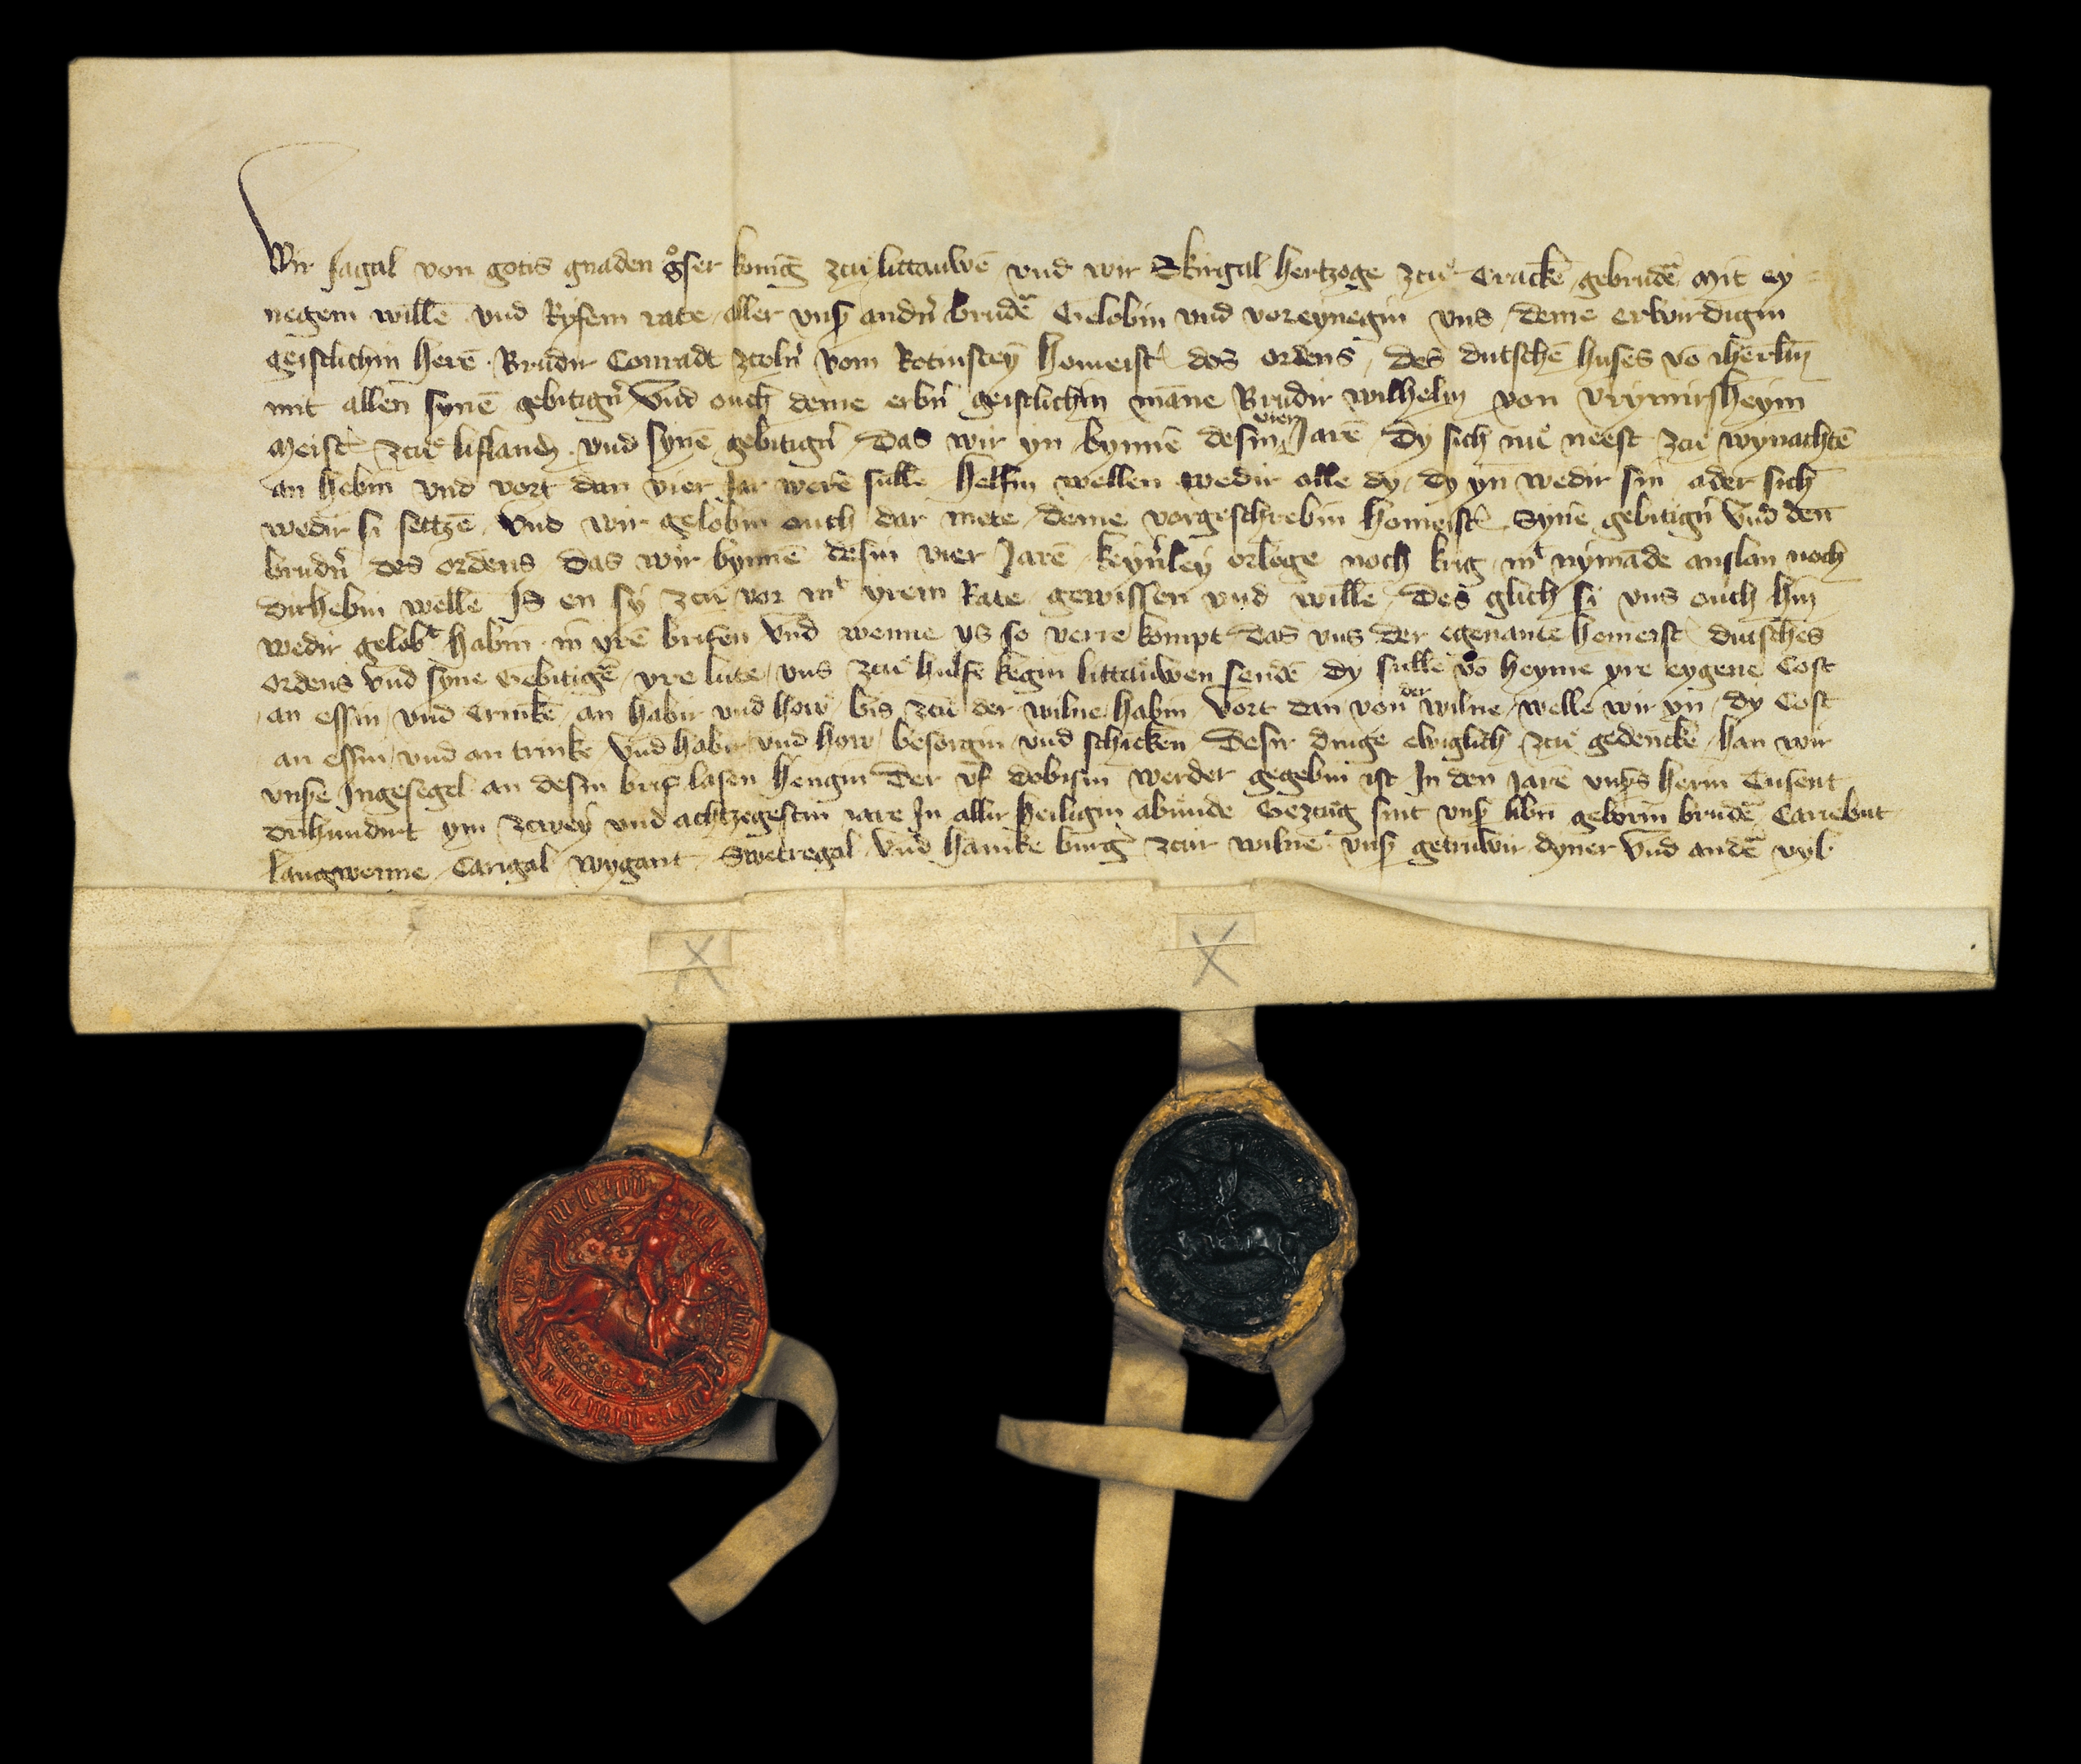 Wir Jagal von gotis gnaden gͦser konīg zcu littauwē vnd wir Skirgal hertzoge zcu Trackē gebrudē Mit ey
negem willē vnd Ryfem rate aller vnsꝑ andn̄ brudē Gelobin vnd voreynegin vns deme erwirdigin
Geistlichin Herē Brudir Conradt zcoln̄ vom Rotinsteyn Homeist̄ des ordens des dutschē huses vō iherl̄m
mit allen synē gebitign̄ Vnd ouch deme erbn̄ geistlichin māne Brudir wilhelm von vrymirsheym
Meist̄ zcu lifland vnd synē gebitign̄ Das wir yn bynnē desin vier Jarē Dy sich nu neest zcu wynachtē
an hebin vnd vort dan vier Jar werē sullē Helfin wellen wedir alle dy dy yn wedir sin ader sich
wedir si settzē Vnd wir gelobin ouch dar mete deme vorgeschrebin homeist̄ Synē gebitign̄ Vnd den
brudn̄ des ordens Das wir bynnē desin vier Jarē keyn̄ley orloge noch krig mᵗ nymāde anslan noch
dirhebin wellē Is en sy zcu vor mᵗ yrem Rate gewissen vnd willē Des glich si vns ouch hin
wedir gelobᵗ habin in yrē brifen Vnd wenne ys so verre kompt das vns der egenante homeist̄ dutsches
ordens Vnd syne Gebitigē yre lute vns zcu hulfe kegin littauwen sendē dy sullē vō heyme yre eygene Cost
an essin vnd Trinkē an habir vnd how bis zcu der wilne habin Vort dan von der wilne wellē wir yn dy Cost
an essin vnd an trinkē Vnd habir vnd how besorgin vnd schicken Desir dinge ewiglich zcu gedenckē han wir
vnsꝑe Ingesegel an desin brif lasen hengin Der vf Dobisin werder gegebin ist In den Jarē vnsꝑs herin Tusent
drihundirt ym zcwey vnd achtzegestin iare In allir heiligin abunde Gezcug sint vnsꝑ libn̄ geborin brudē Cariebut
langwenne Carigal wygant Swetregal Vnd hanike burgˀ zcur wilnē vnsꝑ getruwir dyner Vnd andē vyl